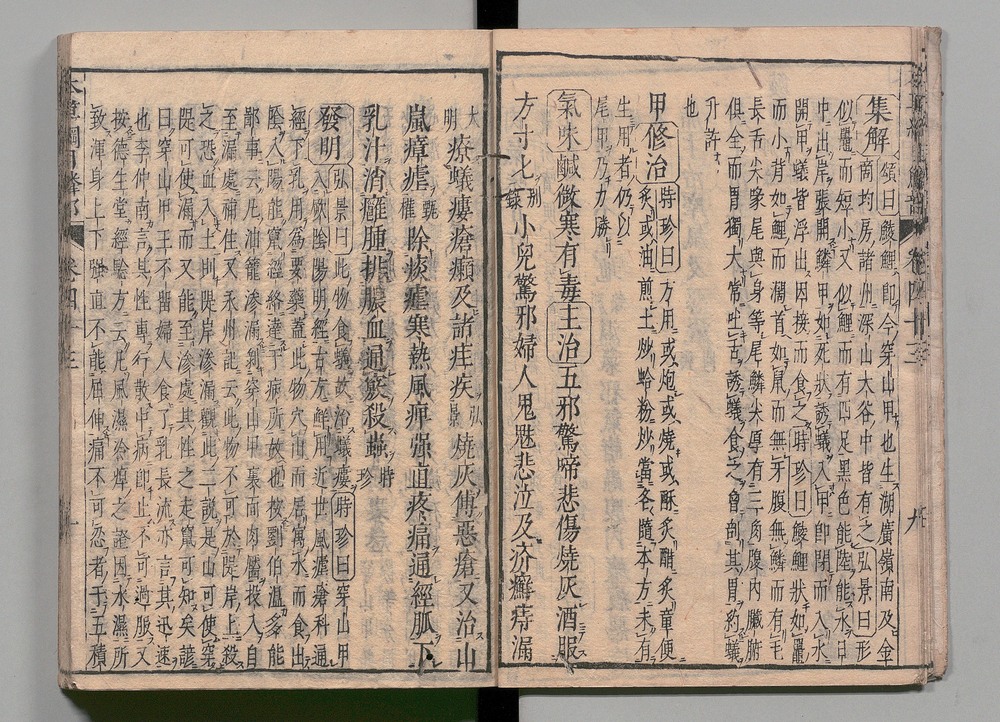 集解 頌曰鯪鯉即今穿山甲也生湖廣嶺南及金
商均房諸州深山大谷中皆有之弘景曰形
似鼉而短小又似鯉而有四足黑色能陸能水日
中出岸張開鱗甲如死狀誘蟻入甲即閉而入水
開甲蟻皆浮出因接而食之時珍曰鯪鯉狀如鼉
而小背如鯉而濶首如鼠而無牙腹無鱗而有毛
長舌尖喙尾與身等尾鱗尖厚有三角腹內臟腑
俱全而胃獨大常吐舌誘蟻食之曾剖其胃約蟻
升許
也
甲 修治 時珍曰方用或炮或燒或酥炙醋炙童便
炙或油煎土炒蛤粉炒當各隨本方未有
生用者仍以
尾甲乃力勝
氣味鹹微寒有毒主治五邪驚啼悲傷燒灰酒服
方寸匕別錄小兒驚邪婦人鬼魅悲泣及疥癬痔漏
大明療蟻瘻瘡癩及諸疰疾弘景燒灰傅惡瘡又治山
嵐瘴瘧甄權除痰瘧寒熱風痺强直疼痛通經脈下
乳汁消癰腫排膿血通竅殺蟲時珍
發明 弘景曰此物食蟻故治蟻瘻時珍曰穿山甲
入厥陰陽明經古方鮮用近世風瘧瘡科通
經下乳用為要藥蓋此物穴山而居寓水而食出
陰入陽能竄經絡達于病所故也按劉伯溫多能
鄙事云凡油籠滲漏剝穿山甲裏面肉靨投入自
至漏處補住又永州記云此物不可於隄岸上殺
之恐血入土則隄岸滲漏觀此二說是山可使穿
隄可使漏而又能至滲處其性之走竄可知矣諺
曰穿山甲王不留婦人食了乳長流亦言其迅速
也李仲南言其性專行散中病即止不可過服又
按德生堂經驗方云凡風濕冷痺之證因水濕所
致渾身上下强直不能屈伸痛不可忍者于五積